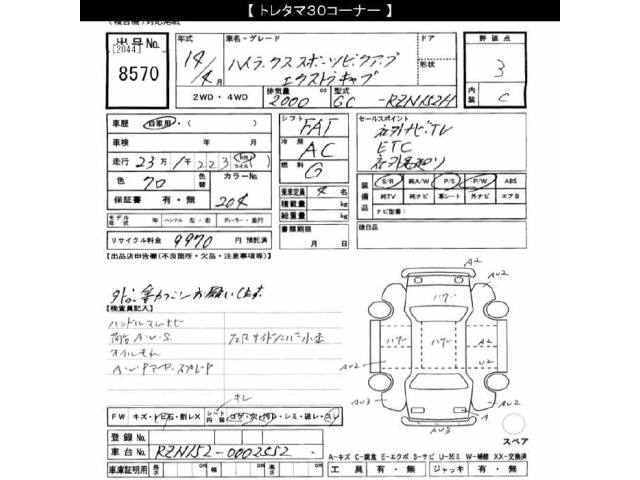 【 トレタマ30コーナー 】
(複合機)対応用紙
出品No.
[2044]
8570
年式
14/4月
車名・グレード
ハイラックススポーツピックアップ
エクストラキャブ
ドア
形状
評価点
3
内装
C
2WD・4WD
排気量 2000 cc
型式 GC -RZN152H
車歴 自家用・( )
車検 年 月
走行 23万1千223 km マイル ( )
色 クロ 色替 カラーNo.
保証書 有・無 204
シフト FAT
冷房 AC
燃料 G
乗車定員 4 名
積載量 kg
総重量 kg
セールスポイント
社外ナビTV
ETC
装備品
S/R 純A/W P/S P/W ABS
純TV 純ナビ 革シート 外ナビ エアB
ナビ型番:
モデル年式 年 ハンドル 左・右 ディーラー・並行
リサイクル料金 9970 円 預託済
書類期限 月 日
後日品
【出品店申告欄(不良箇所・欠品・注意事項等)】
【検査員記入】
ハンドルスレナビ
荷台A・U・S.
オイルモレ
キレ
FW キズ・トビ石・割レX シート内装 コゲ・穴・汚レ・シミ・破レ・スレ
登録No.
車台No. RZN152-0002552
車庫証明用 長さ cm 幅 cm 高さ cm
A2
AU2
ハ゛ワ゛
A2
U2
AU3
A
AU3
AU2
スペア
A-キズ C-腐食 E-エクボ S-サビ U-凹ミ W-補修 XX-交換済
工具 有・無 ジャッキ 有・無